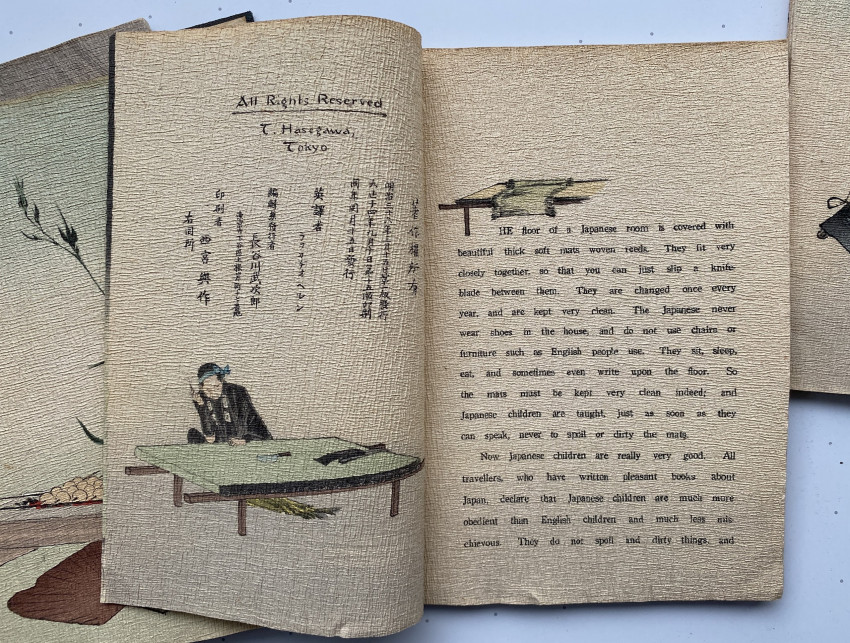 All Rights Reserved
T. Hasegawa,
Tokyo
著作權所有
同年同月十五日發行
英譯者
ラフカヂオ ヘルン
編輯兼發行者
長谷川武次郎
印刷者
西宮與作
右同所
HE floor of a Japanese room is covered with
beautiful thick soft mats woven reeds. They fit very
closely together, so that you can just slip a knife-
blade between them. They are changed once every
year, and are kept very clean. The Japanese never
wear shoes in the house, and do not use chairs or
furniture such as English people use. They sit, sleep,
eat, and sometimes even write upon the floor. So
the mats must be kept very clean indeed; and
Japanese children are taught, just as soon as they
can speak, never to spoil or dirty the mats.
Now Japanese children are really very good. All
travellers, who have written pleasant books about
Japan, declare that Japanese children are much more
obedient than English children and much less mis-
chievous. They do not spoil and dirty things, and